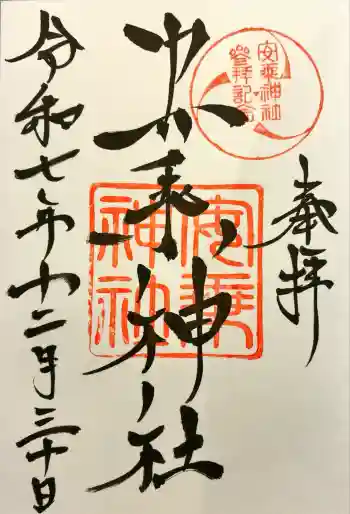 奉拝
安乗神社
登拝記念
安乗神社
安乗
神社
令和七年十二月三十日